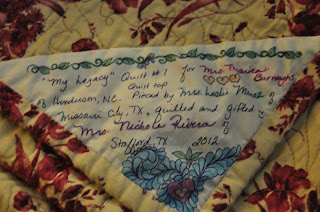 "My Legacy" Quilt #1 for Mrs. Burroughs
Quilt top
of Henderson, NC. Pieced by Mrs. Leslie
Missouri City, TX, quilted and gifted by
Mrs. Nichole Rivera of
Stafford, TX 2012